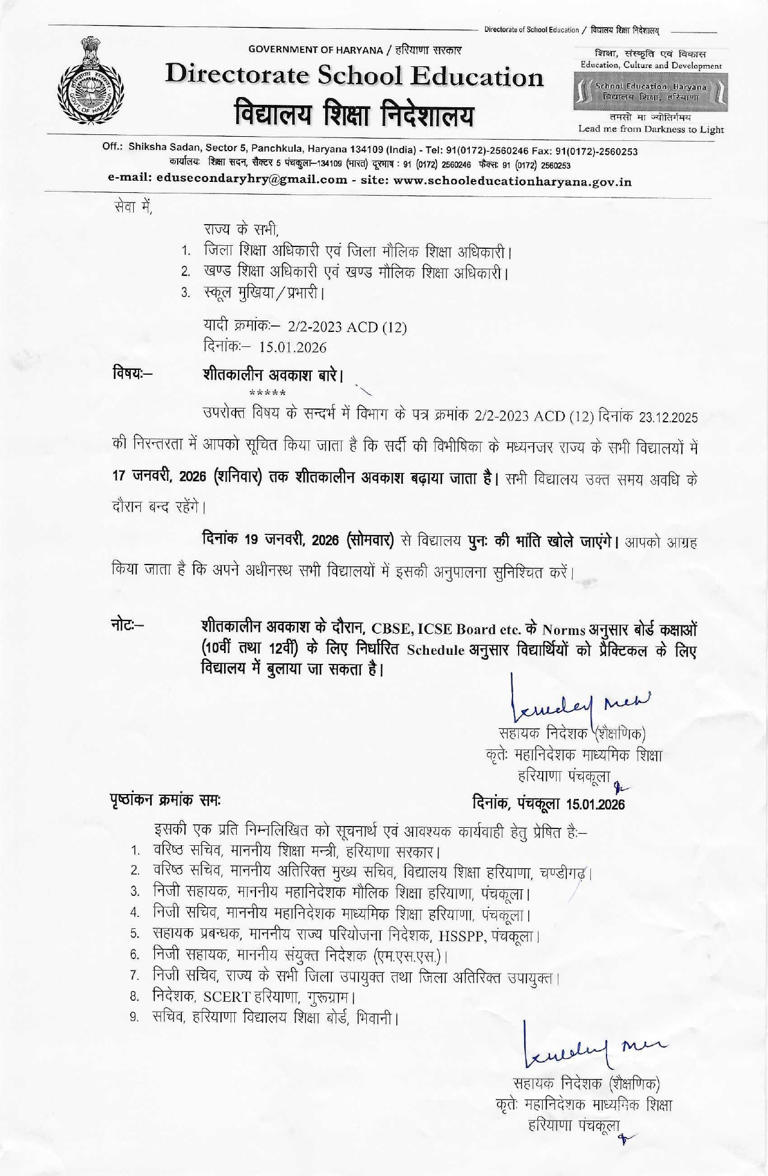 Directorate of School Education / विद्यालय शिक्षा निदेशालय
GOVERNMENT OF HARYANA / हरियाणा सरकार
Directorate School Education
विद्यालय शिक्षा निदेशालय
शिक्षा, संस्कृति एवं विकास
Education, Culture and Development
School Education, Haryana
विद्यालय शिक्षा, हरियाणा
तमसो मा ज्योतिर्गमय
Lead me from Darkness to Light
Off.: Shiksha Sadan, Sector 5, Panchkula, Haryana 134109 (India) - Tel: 91(0172)-2560246 Fax: 91(0172)-2560253
कार्यालयः शिक्षा सदन, सैक्टर 5 पंचकूला–134109 (भारत) दूरभाष : 91 (0172) 2560246 फैक्सः 91 (0172) 2560253
e-mail: edusecondaryhry@gmail.com - site: www.schooleducationharyana.gov.in
सेवा में,
राज्य के सभी,
1. जिला शिक्षा अधिकारी एवं जिला मौलिक शिक्षा अधिकारी।
2. खण्ड शिक्षा अधिकारी एवं खण्ड मौलिक शिक्षा अधिकारी।
3. स्कूल मुखिया/प्रभारी।
यादी क्रमांकः– 2/2-2023 ACD (12)
दिनांकः– 15.01.2026
विषयः– शीतकालीन अवकाश बारे।
*****
उपरोक्त विषय के सन्दर्भ में विभाग के पत्र क्रमांक 2/2-2023 ACD (12) दिनांक 23.12.2025
की निरन्तरता में आपको सूचित किया जाता है कि सर्दी की विभीषिका के मध्यनजर राज्य के सभी विद्यालयों में
17 जनवरी, 2026 (शनिवार) तक शीतकालीन अवकाश बढ़ाया जाता है। सभी विद्यालय उक्त समय अवधि के
दौरान बन्द रहेंगे।
दिनांक 19 जनवरी, 2026 (सोमवार) से विद्यालय पुनः की भांति खोले जाएंगे। आपको आग्रह
किया जाता है कि अपने अधीनस्थ सभी विद्यालयों में इसकी अनुपालना सुनिश्चित करें।
नोटः– शीतकालीन अवकाश के दौरान, CBSE, ICSE Board etc. के Norms अनुसार बोर्ड कक्षाओं
(10वीं तथा 12वीं) के लिए निर्धारित Schedule अनुसार विद्यार्थियों को प्रैक्टिकल के लिए
विद्यालय में बुलाया जा सकता है।
सहायक निदेशक (शैक्षणिक)
कृतेः महानिदेशक माध्यमिक शिक्षा
हरियाणा पंचकूला
पृष्ठांकन क्रमांक समः दिनांक, पंचकूला 15.01.2026
इसकी एक प्रति निम्नलिखित को सूचनार्थ एवं आवश्यक कार्यवाही हेतु प्रेषित हैः–
1. वरिष्ठ सचिव, माननीय शिक्षा मन्त्री, हरियाणा सरकार।
2. वरिष्ठ सचिव, माननीय अतिरिक्त मुख्य सचिव, विद्यालय शिक्षा हरियाणा, चण्डीगढ़।
3. निजी सहायक, माननीय महानिदेशक मौलिक शिक्षा हरियाणा, पंचकूला।
4. निजी सचिव, माननीय महानिदेशक माध्यमिक शिक्षा हरियाणा, पंचकूला।
5. सहायक प्रबन्धक, माननीय राज्य परियोजना निदेशक, HSSPP, पंचकूला।
6. निजी सहायक, माननीय संयुक्त निदेशक (एम.एस.एस.)।
7. निजी सचिव, राज्य के सभी जिला उपायुक्त तथा जिला अतिरिक्त उपायुक्त।
8. निदेशक, SCERT हरियाणा, गुरूग्राम।
9. सचिव, हरियाणा विद्यालय शिक्षा बोर्ड, भिवानी।
सहायक निदेशक (शैक्षणिक)
कृतेः महानिदेशक माध्यमिक शिक्षा
हरियाणा पंचकूला